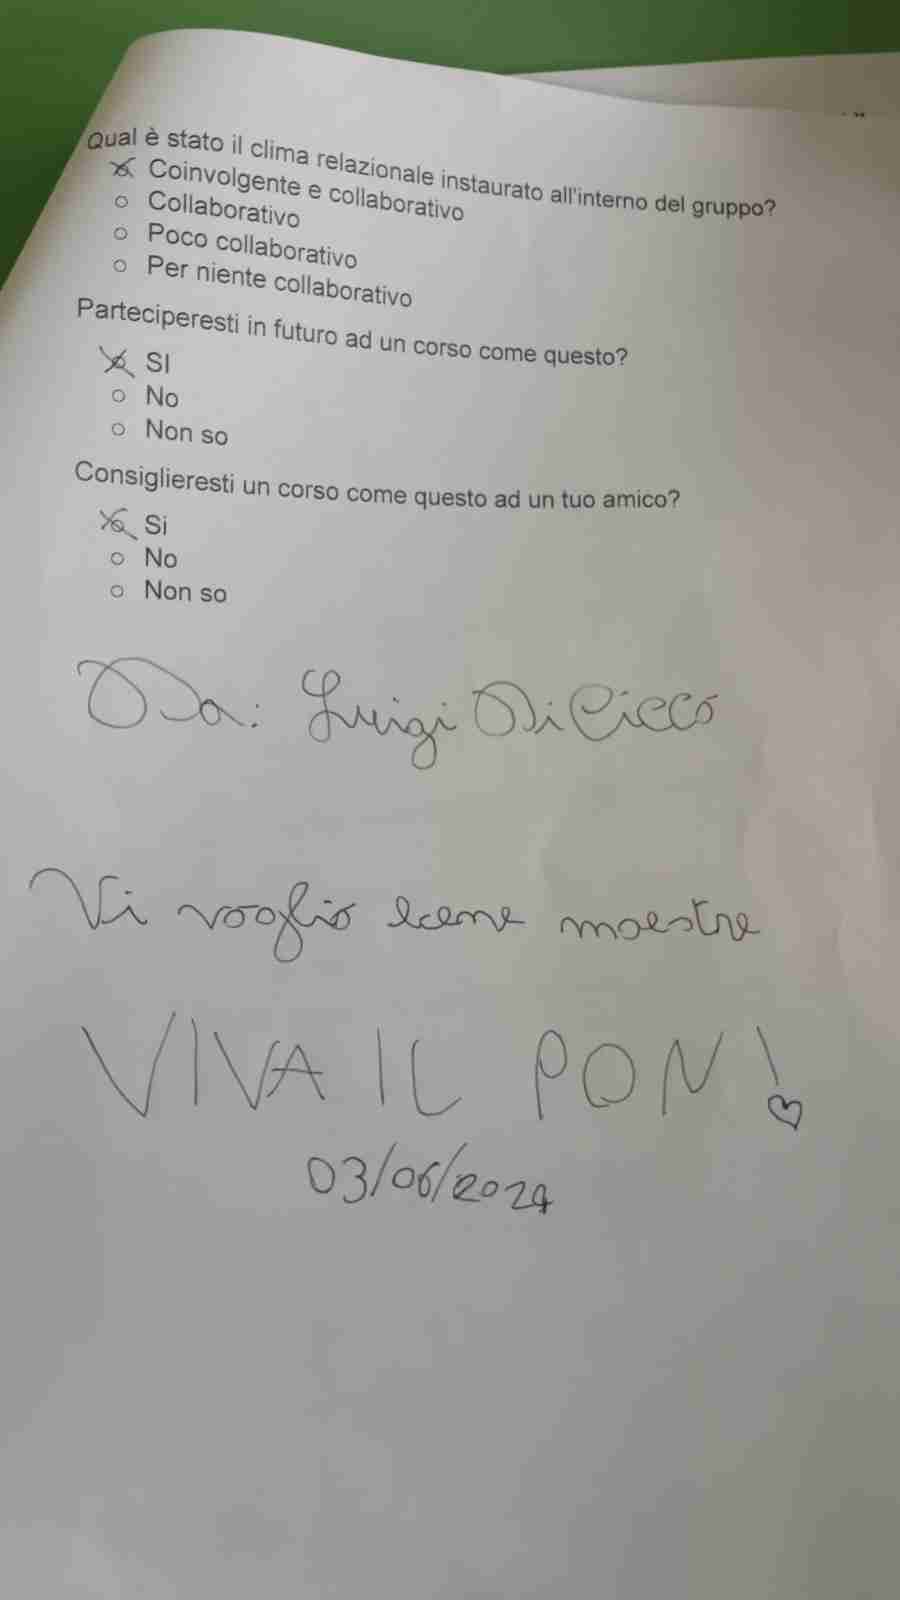 Qual è stato il clima relazionale instaurato all'interno del gruppo?
Coinvolgente e collaborativo
Collaborativo
Poco collaborativo
Per niente collaborativo
Parteciperesti in futuro ad un corso come questo?
SI
No
Non so
Consiglieresti un corso come questo ad un tuo amico?
Si
No
Non so
Da: Luigi Di Cicco
Vi voglio bene maestre
VIVA IL PON!
03/06/2024